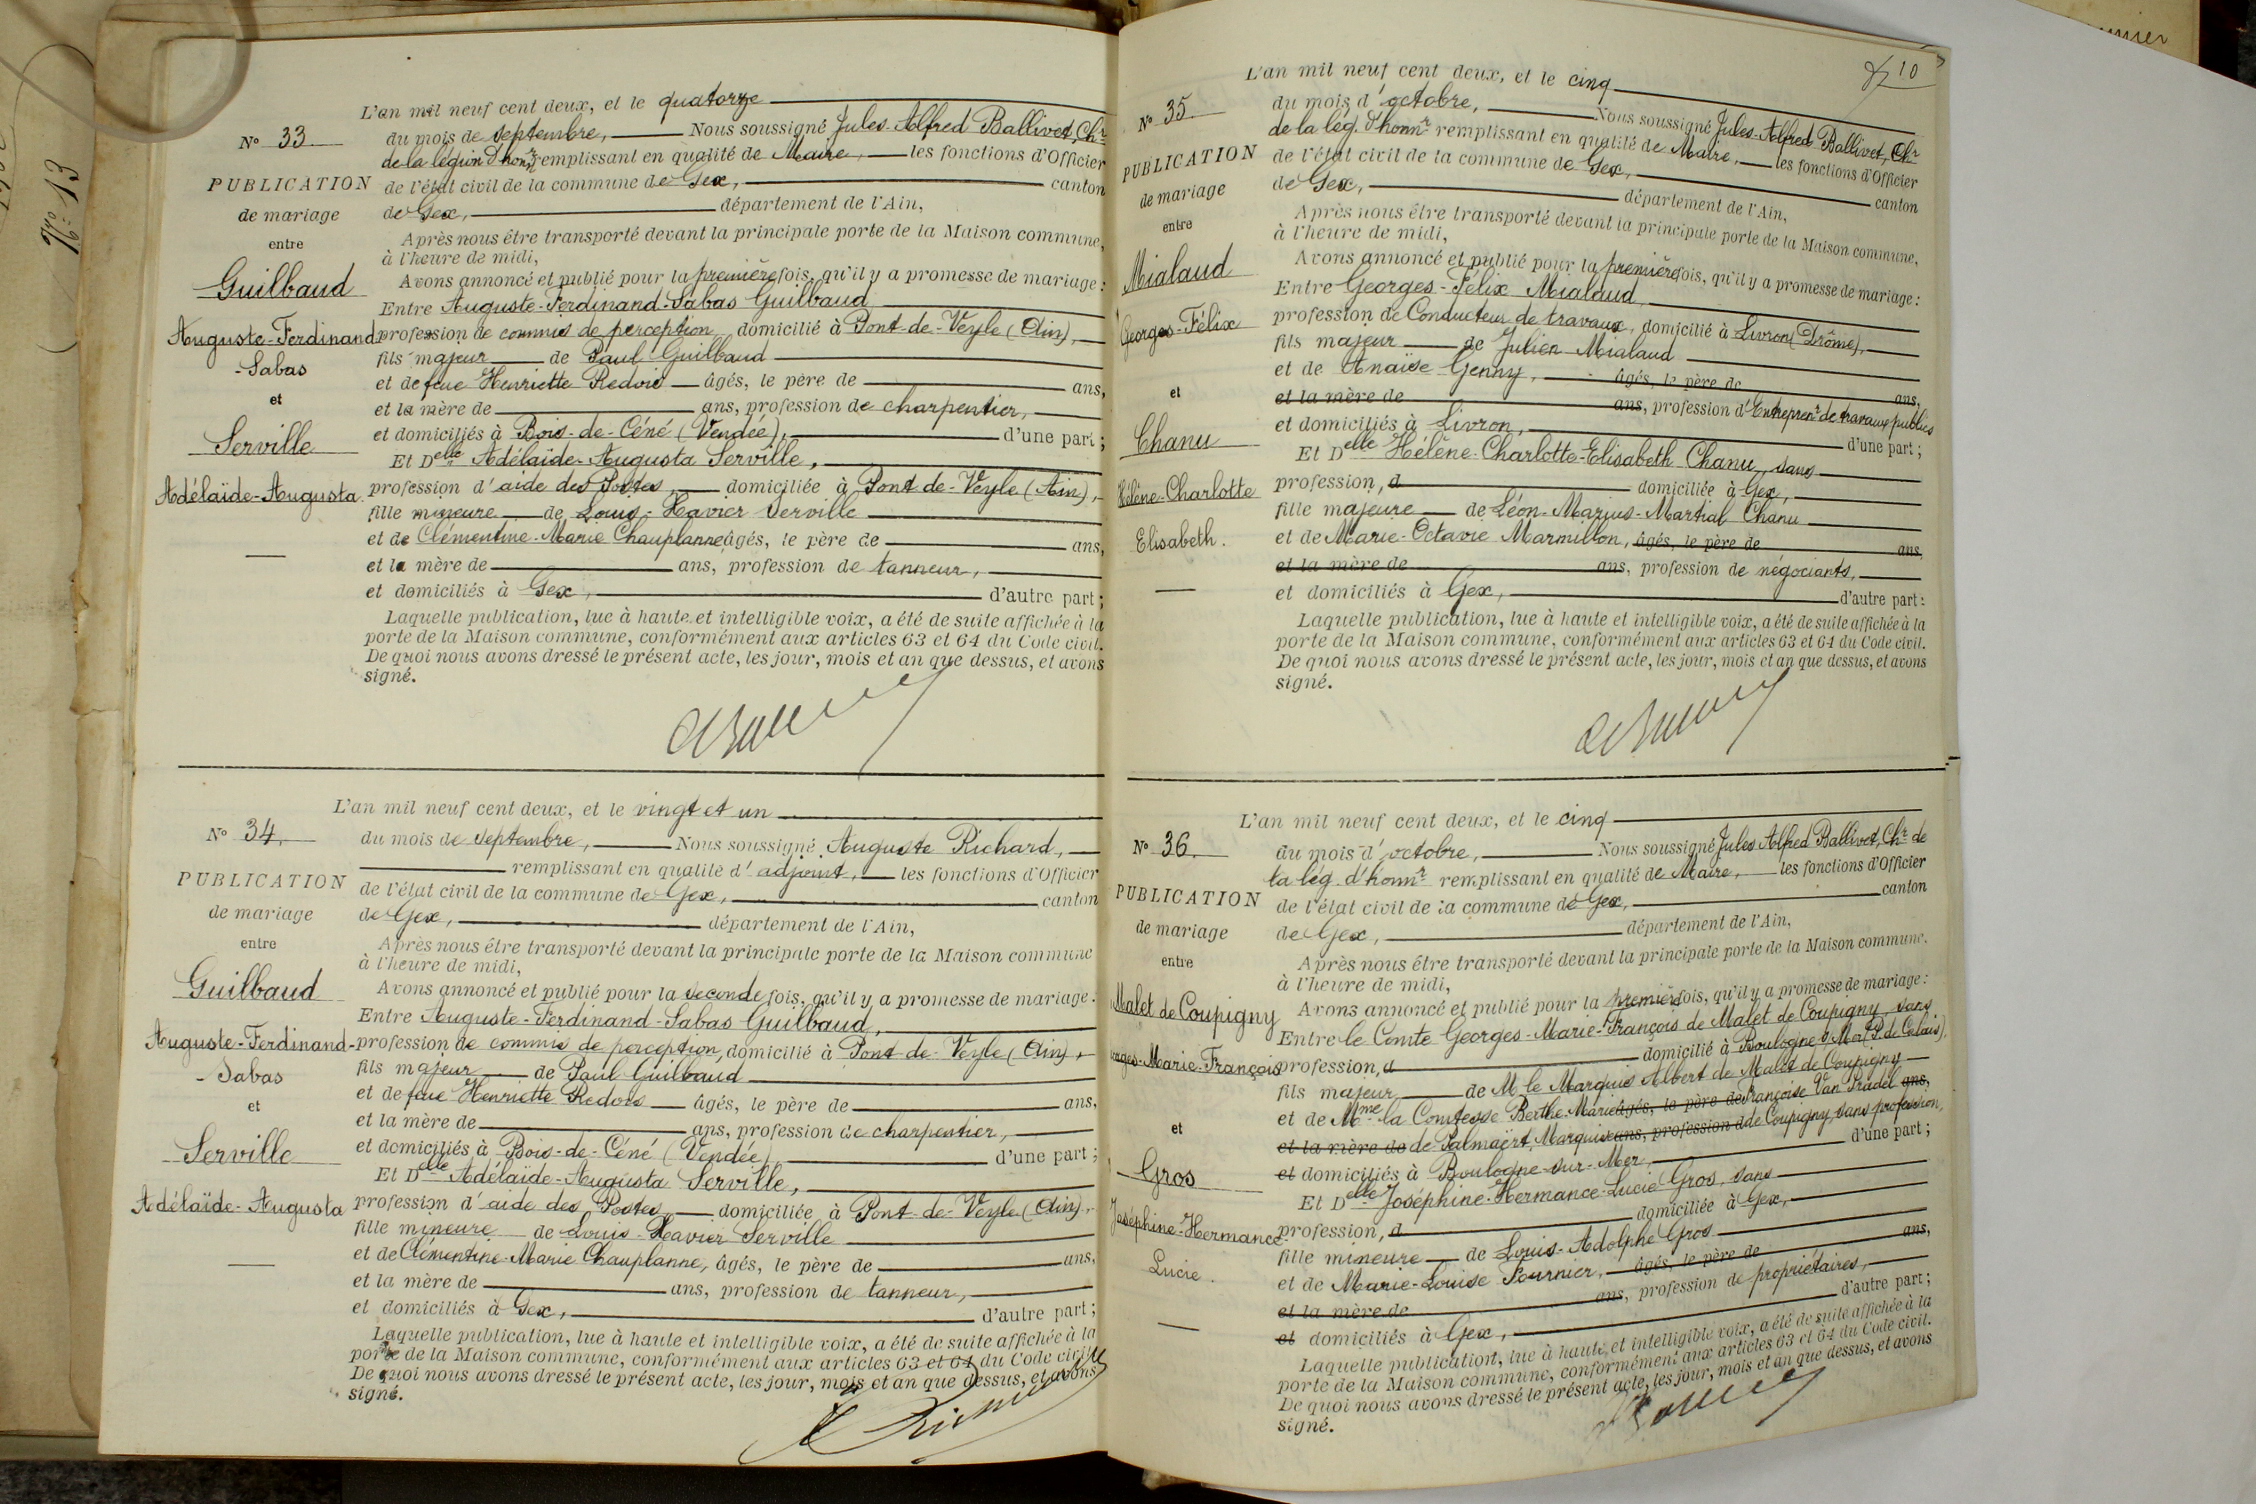 No 13
unier
L'an mil neuf cent deux, et le quatorze
No 33
du mois de septembre, Nous soussigné Jules-Alfred Ballivet, Chr
de la légion d'honr remplissant en qualité de Maire, les fonctions d'Officier
PUBLICATION
de l'état civil de la commune de Gex, canton
de mariage
de Gex, département de l'Ain,
entre
Après nous être transporté devant la principale porte de la Maison commune,
à l'heure de midi,
Guilbaud
Avons annoncé et publié pour la première fois, qu'il y a promesse de mariage :
Entre Auguste-Ferdinand-Sabas Guilbaud
Auguste-Ferdinand
profession de commis de perception, domicilié à Pont-de-Veyle (Ain),
-Sabas
fils majeur de Paul Guilbaud
et de feue Henriette Redois âgés, le père de ans,
et
et la mère de ans, profession de charpentier,
Serville
et domiciliés à Bois-de-Céné (Vendée), d'une part ;
Et Delle Adélaïde-Augusta Serville,
Adélaïde-Augusta
profession d'aide des Postes, domiciliée à Pont-de-Veyle (Ain),
fille mineure de Louis-Xavier Serville
et de Clémentine-Marie Chauplanne âgés, le père de ans,
et la mère de ans, profession de tanneur,
et domiciliés à Gex, d'autre part ;
Laquelle publication, lue à haute et intelligible voix, a été de suite affichée à la
porte de la Maison commune, conformément aux articles 63 et 64 du Code civil.
De quoi nous avons dressé le présent acte, les jour, mois et an que dessus, et avons
signé.
L'an mil neuf cent deux, et le vingt et un
No 34.
du mois de septembre, Nous soussigné Auguste Richard,
remplissant en qualité d'adjoint, les fonctions d'Officier
PUBLICATION
de l'état civil de la commune de Gex, canton
de mariage
de Gex, département de l'Ain,
entre
Après nous être transporté devant la principale porte de la Maison commune
à l'heure de midi,
Guilbaud
Avons annoncé et publié pour la seconde fois, qu'il y a promesse de mariage.
Entre Auguste-Ferdinand-Sabas Guilbaud,
Auguste-Ferdinand-
profession de commis de perception, domicilié à Pont-de-Veyle (Ain),
-Sabas
fils majeur de Paul Guilbaud
et de feue Henriette Redois âgés, le père de ans,
et
et la mère de ans, profession de charpentier,
Serville
et domiciliés à Bois-de-Céné (Vendée) d'une part ;
Et Delle Adélaïde-Augusta Serville,
Adélaïde-Augusta
profession d'aide des Postes, domiciliée à Pont-de-Veyle (Ain),
fille mineure de Louis-Xavier Serville
et de Clémentine-Marie Chauplanne, âgés, le père de ans,
et la mère de ans, profession de tanneur,
et domiciliés à Gex, d'autre part ;
Laquelle publication, lue à haute et intelligible voix, a été de suite affichée à la
porte de la Maison commune, conformément aux articles 63 et 64 du Code civil.
De quoi nous avons dressé le présent acte, les jour, mois et an que dessus, et avons
signé.
10
L'an mil neuf cent deux, et le cinq
No 35.
du mois d'octobre, Nous soussigné Jules-Alfred Ballivet, Chr
de la lég. d'honnr remplissant en qualité de Maire, les fonctions d'Officier
PUBLICATION
de l'état civil de la commune de Gex, canton
de mariage
de Gex, département de l'Ain,
entre
Après nous être transporté devant la principale porte de la Maison commune,
à l'heure de midi,
Mialaud
Avons annoncé et publié pour la première fois, qu'il y a promesse de mariage :
Entre Georges-Félix Mialaud,
Georges-Félix
profession de Conducteur de travaux, domicilié à Livron (Drôme),
fils majeur de Julien Mialaud
et de Anaïse Genny, âgés, le père de ans,
et
et la mère de ans, profession d'Entreprenr de travaux publics
et domiciliés à Livron, d'une part ;
Chanu
Et Delle Hélène-Charlotte-Elisabeth Chanu, sans
profession, d domiciliée à Gex,
Hélène-Charlotte
fille majeure de Léon-Marius-Martial Chanu
Elisabeth.
et de Marie-Octavie Marmillon, âgés, le père de ans,
et la mère de ans, profession de négociants,
et domiciliés à Gex, d'autre part :
Laquelle publication, lue à haute et intelligible voix, a été de suite affichée à la
porte de la Maison commune, conformément aux articles 63 et 64 du Code civil.
De quoi nous avons dressé le présent acte, les jour, mois et an que dessus, et avons
signé.
L'an mil neuf cent deux, et le cinq
No 36.
du mois d'octobre, Nous soussigné Jules Alfred Ballivet, Chr de
la lég. d'honnr remplissant en qualité de Maire, les fonctions d'Officier
PUBLICATION
de l'état civil de la commune de Gex, canton
de mariage
de Gex, département de l'Ain,
entre
Après nous être transporté devant la principale porte de la Maison commune.
à l'heure de midi,
Malet de Coupigny
Avons annoncé et publié pour la première fois, qu'il y a promesse de mariage :
Entre le Comte Georges-Marie-François de Malet de Coupigny, sans
rges-Marie-François
profession, d domicilié à Boulogne s. Mer (P. de Calais),
fils majeur de M le Marquis Albert de Malet de Coupigny
et de Mme la Comtesse Berthe-Marie âgés, le père de Françoise Van Pradel ans,
et
et la mère de de Palmaërt, Marquise ans, profession d de Coupigny, sans profession,
Gros
et domiciliés à Boulogne-sur-Mer, d'une part ;
Et Delle Joséphine-Hermance-Lucie Gros, sans
Joséphine-Hermance-
profession, d domiciliée à Gex,
fille mineure de Louis-Adolphe Gros
Lucie.
et de Marie-Louise Fournier, âgés, le père de ans,
et la mère de ans, profession de propriétaires,
et domiciliés à Gex, d'autre part ;
Laquelle publication, lue à haute et intelligible voix, a été de suite affichée à la
porte de la Maison commune, conformément aux articles 63 et 64 du Code civil.
De quoi nous avons dressé le présent acte, les jour, mois et an que dessus, et avons
signé.